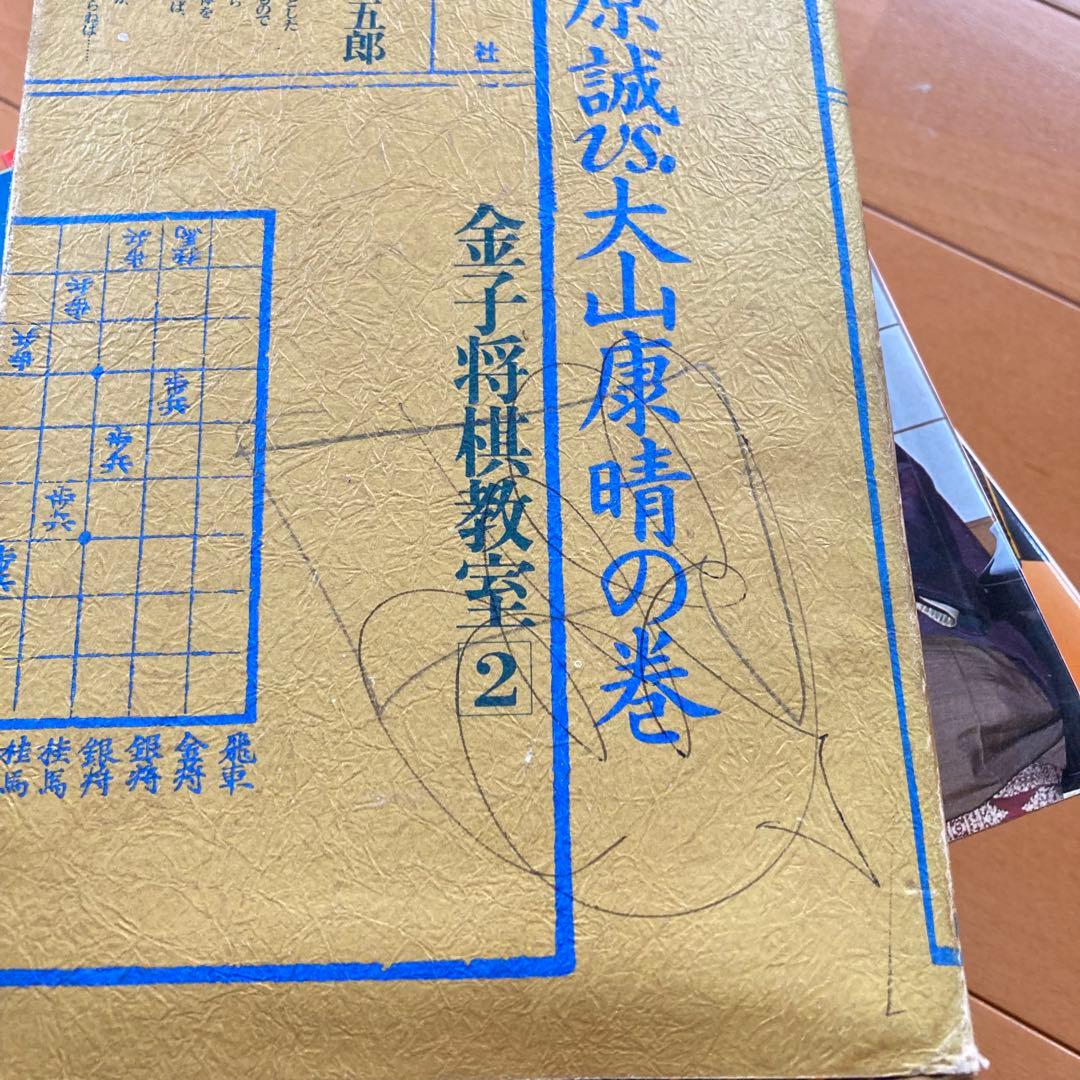 原誠vs.大山康晴の巻
金子将棋教室2
五郎
社
桂馬
歩兵
歩兵
歩兵
歩兵
歩兵
歩兵
飛車
金将
銀将
銀将
桂馬
桂馬